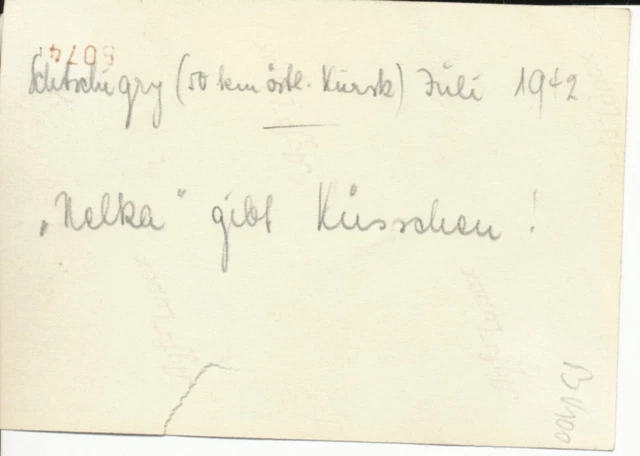 50747
Schtschigry (50 km östl. Kursk) Juli 1942
„Nelka“ gibt Küsschen!